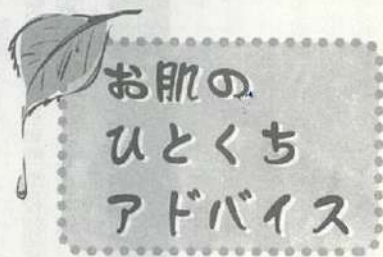 お肌の
ひとくち
アドバイス